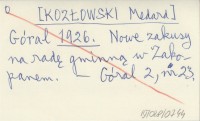 [KOZŁOWSKI Medard]
Góral 1926. Nowe zakusy
na radę gminną w Zako-
panem. — Góral 2, nr 23.